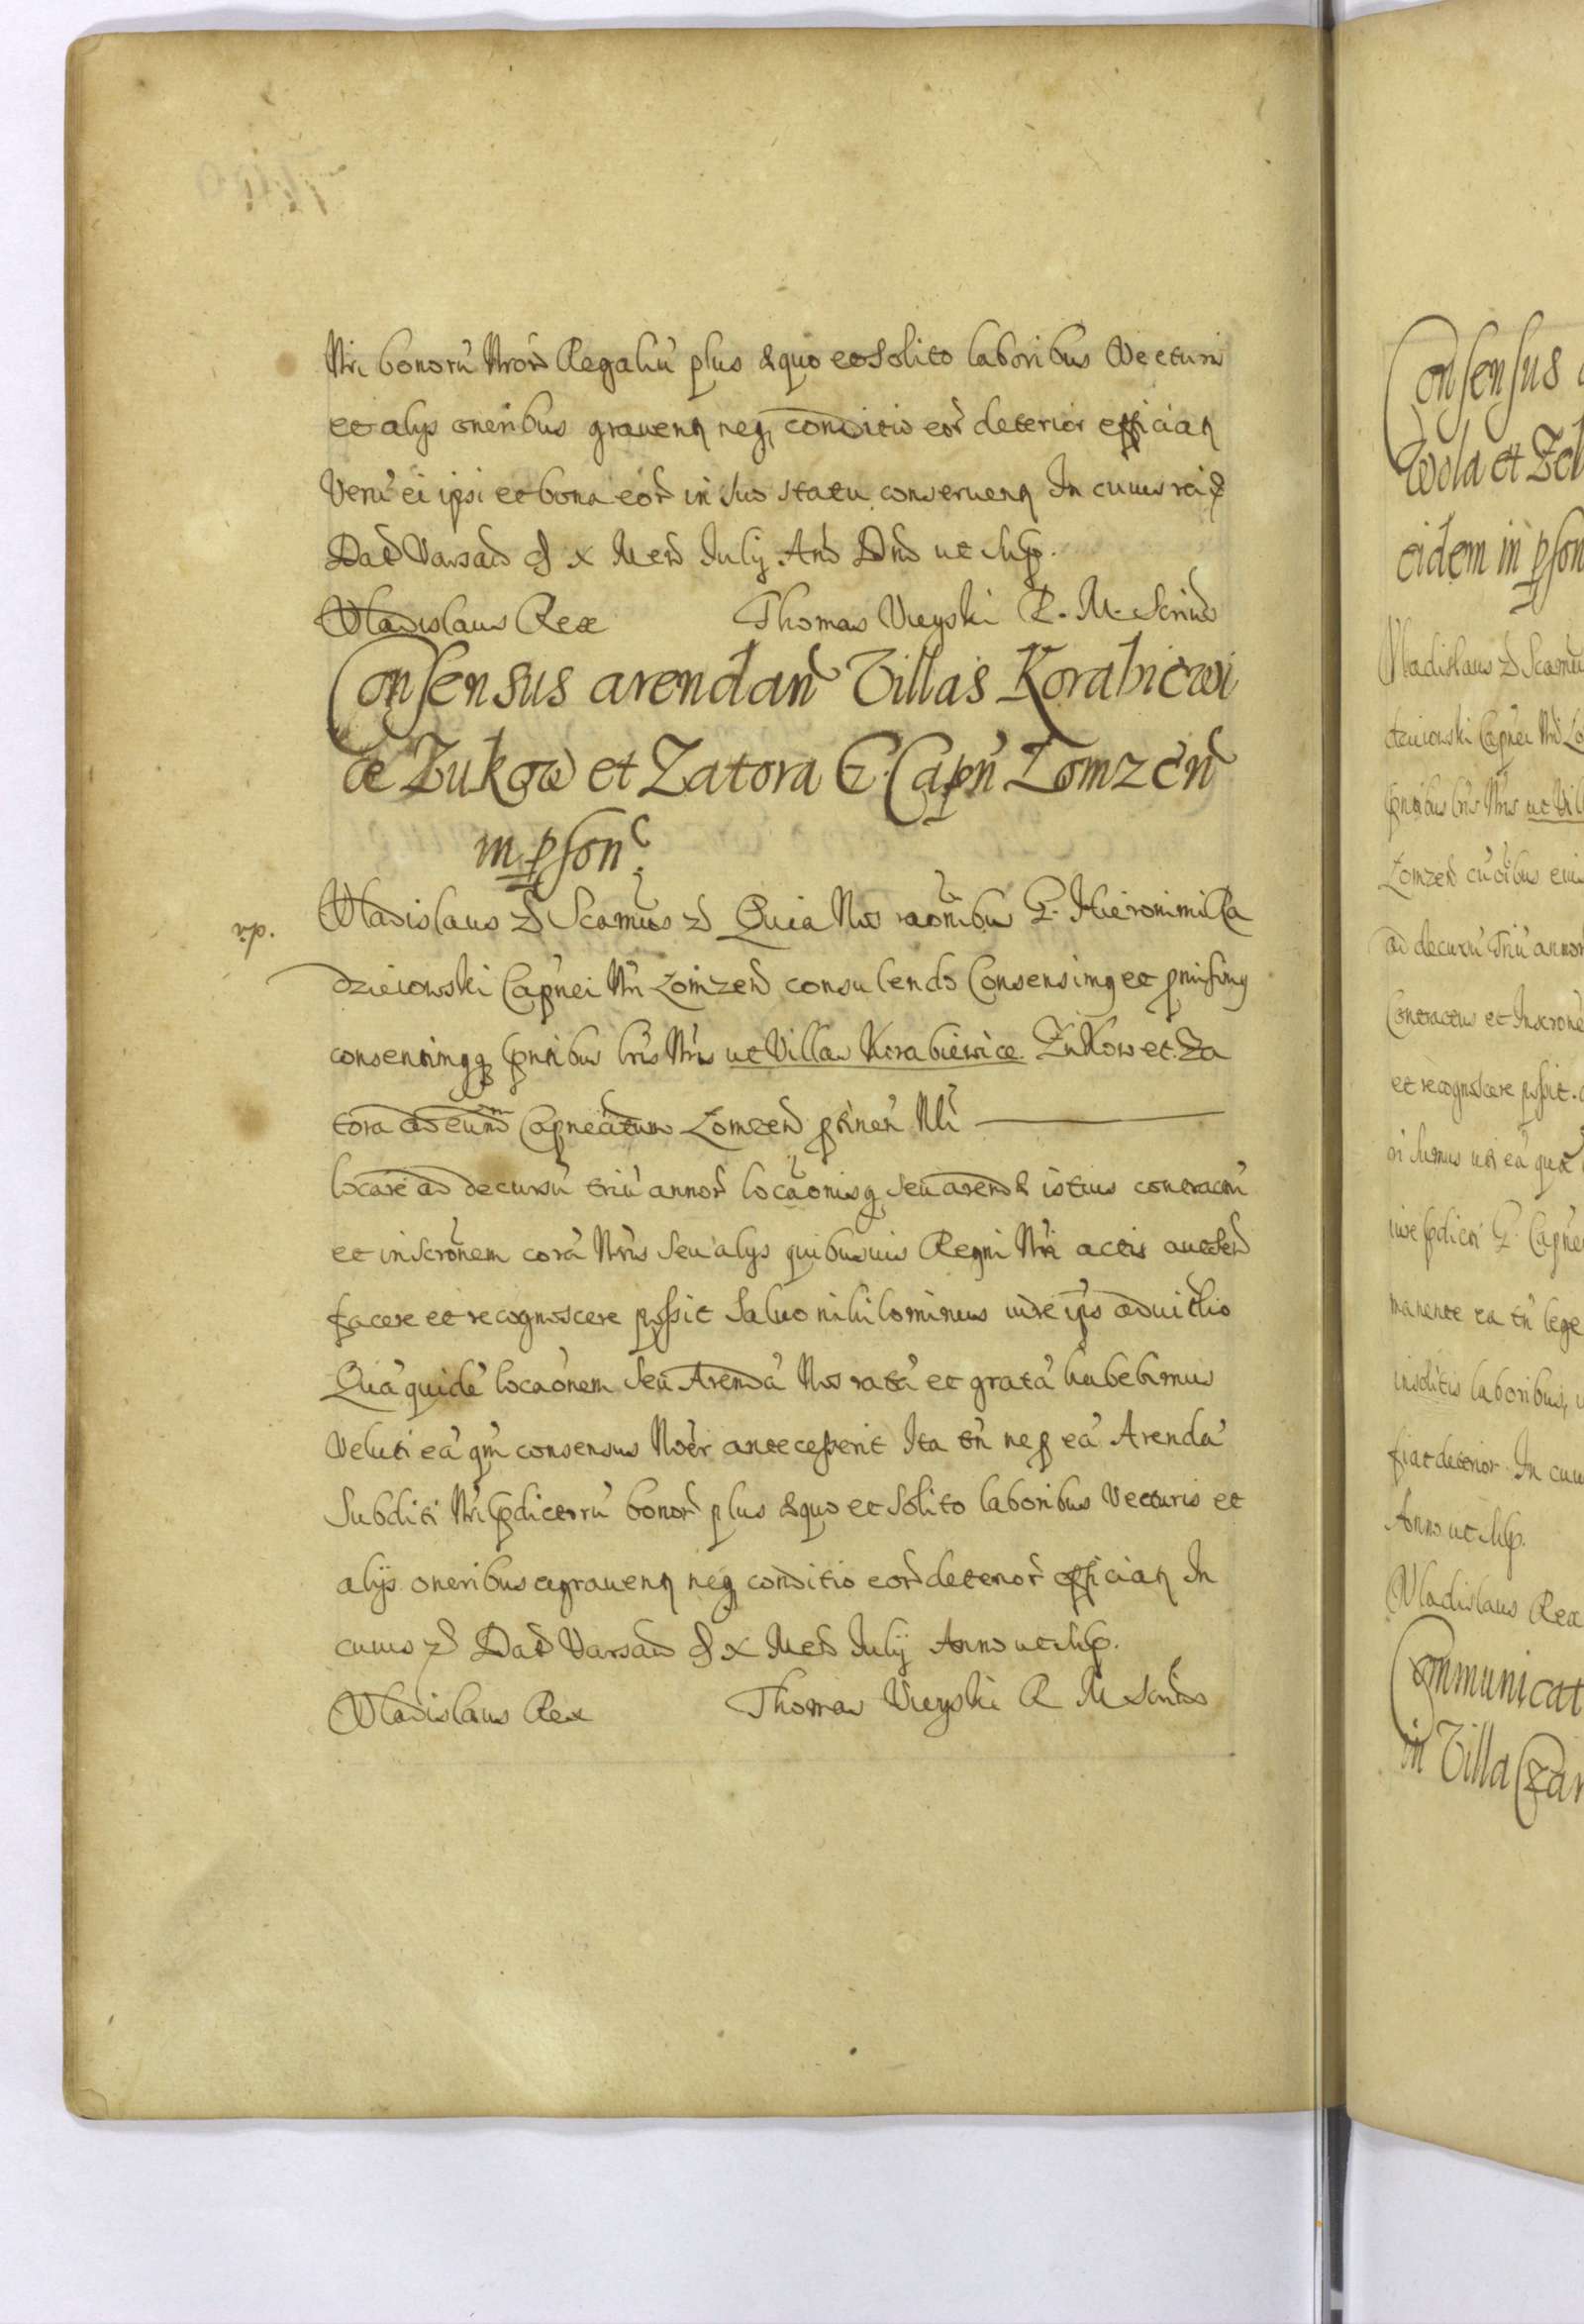 Nri bonorũ Nrorũ Regaliũ plus æquo et solito laboribus Vecturis
et alys oneribus grauent neq conditio eor deterior efficiat
Verũ ei ipsi et bona eor in suo statu conseruent In cuius rei
Dat Varsaw d x Mens July Ann Dni ut sup.
Vladislaus Rex Thomas Vieyski R. M. Scrinio
Consensus arendand Villas Korabiewi
ce Zukow et Zatora G. Capn Lomzen
in pson
Vladislaus Scamus Quia Nos raonibus G. Hieronimi Ra
dzieiowski Capnei Nri Lomzen consulendo Consensimq et pmisimq
consentimqq pntibus lris Nris ut Villas Korabiewice Zukow et Za
tora ad eund Capneatum Lomzen ptinen Nli
locare ad decursũ triũ annor locaonisq seu arendæ istius contractũ
et inscronem corã Nris seu alys quibusuis Regni Nri actis authen
facere et recognoscere possit Saluo nihilominus iure ips aduitlio
Quã quidẽ locaonem seu Arendã Nos ratã et gratã habebimus
Veluti eã qm consensus Nster antecesserit Ita tn ne p eã Arendã
Subditi Nri pdictorũ bonor plus æquo et solito laboribus Vecturis et
alijs oneribus agrauent neq conditio eor deterior efficiat In
cuius Dat Varsaw d x Mens Julij Anno ut sup.
Vladislaus Rex Thomas Vieyski R M Scrinio
Consensus
Wola et
eidem in pson
Vladislaus Scamus
dzieiowski Capnei Nri
pntibus lris Nris ut
Lomzen
ad decursũ triũ annor
Contractus et Inscrone
et recognoscere possit.
ri sumus uti eã quæ
iure pdicti G. Capne
manente ea tn lege
insolitis laboribus,
fiat deterior. In cuius
Anno ut sup.
Vladislaus Rex
Communicat
in Villa